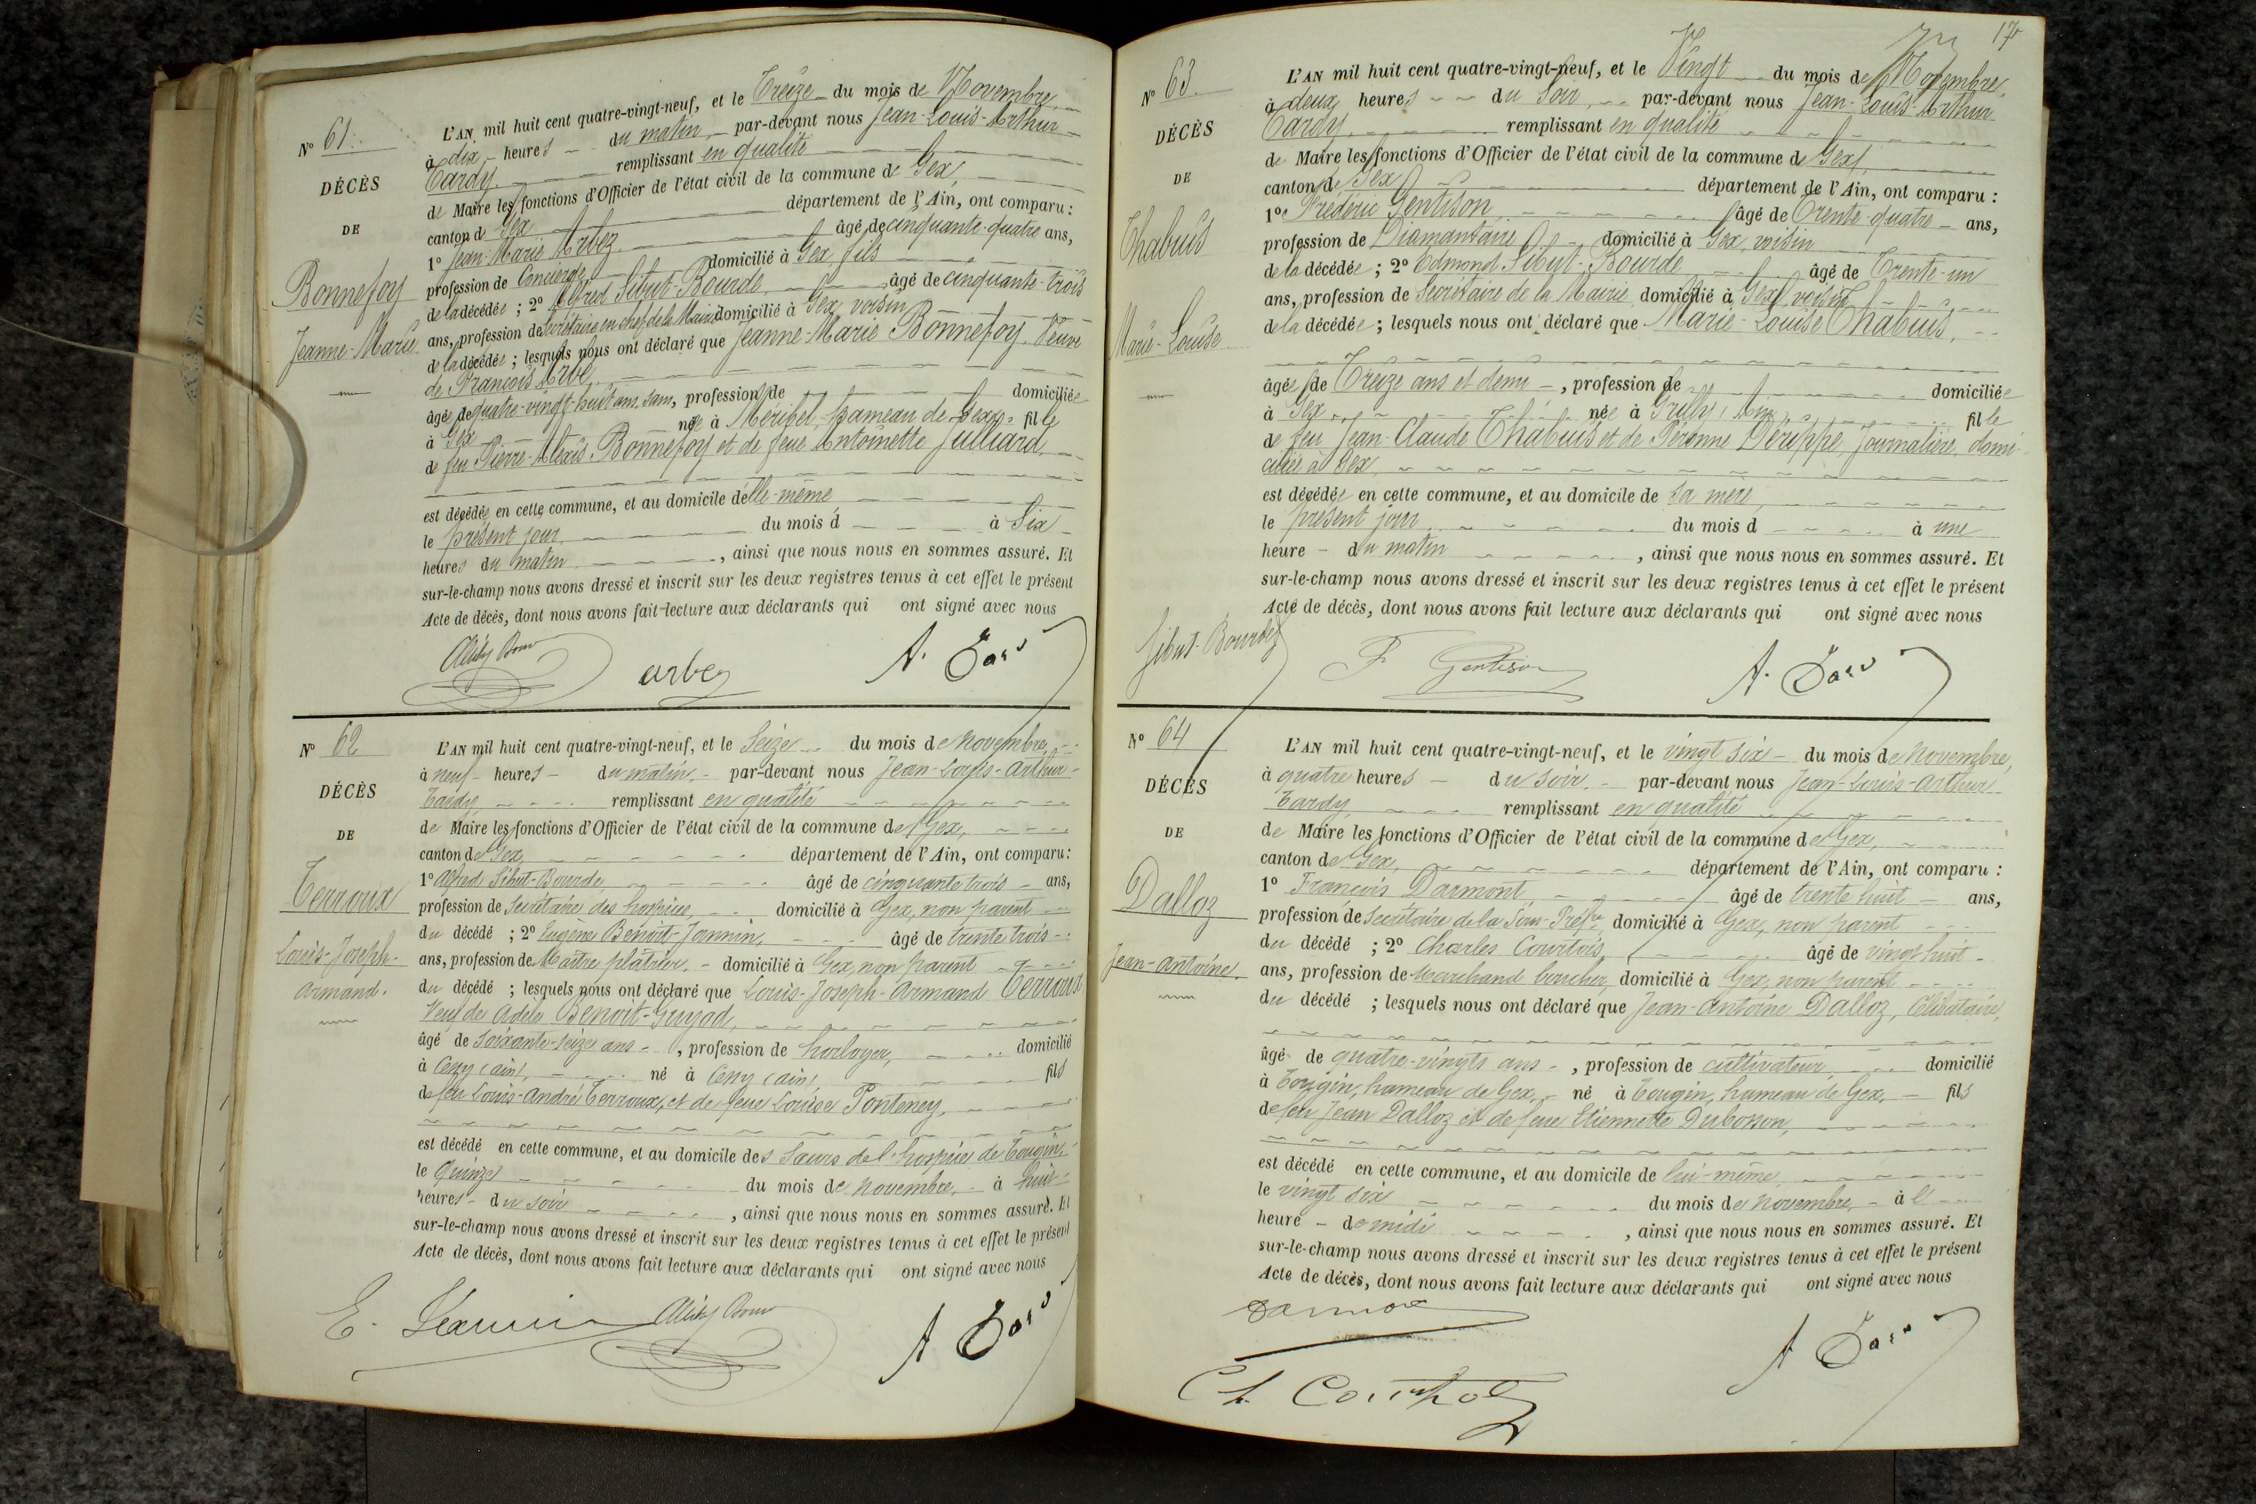 N° 61.
DÉCÈS
DE
Bonnefoy
Jeanne-Marie
L'AN mil huit cent quatre-vingt-neuf, et le Treize du mois de Novembre
à dix heures du matin par-devant nous Jean-Louis-Arthur
Tardy. remplissant en qualité
de Maire les fonctions d'Officier de l'état civil de la commune de Gex,
canton de Gex département de l'Ain, ont comparu :
1° Jean-Marie Arbez. âgé de cinquante-quatre ans,
profession de Concierge domicilié à Gex fils
de la décédée ; 2° Alfred Sibut-Bourde âgé de cinquante-trois
ans, profession de Secrétaire en chef de la Mairie domicilié à Gex, voisin
de la décédée ; lesquels nous ont déclaré que Jeanne-Marie Bonnefoy. Veuve
de François Arbe,
âgée de quatre-vingt-huit ans, sans, profession de domiciliée
à Gex née à Meribel, hameau de Gex, fille
de feu Pierre-Alexis Bonnefoy et de feue Antoinette Julliard.
est décédée en cette commune, et au domicile d'elle-même
le présent jour du mois d à Six
heures du matin , ainsi que nous nous en sommes assuré. Et
sur-le-champ nous avons dressé et inscrit sur les deux registres tenus à cet effet le présent
Acte de décès, dont nous avons fait lecture aux déclarants qui ont signé avec nous
arbez A. Tardy
N° 62
DÉCÈS
DE
Terroux
Louis-Joseph-
Armand.
L'AN mil huit cent quatre-vingt-neuf, et le Seize du mois de Novembre,
à neuf heures du matin par-devant nous Jean-Louis-Arthur
Tardy, remplissant en qualité
de Maire les fonctions d'Officier de l'état civil de la commune de Gex,
canton de Gex département de l'Ain, ont comparu:
1° Alfred Sibut-Bourde, âgé de cinquante trois ans,
profession de Secrétaire des hospices, domicilié à Gex, non parent
du décédé ; 2° Eugène Benoit-Jannin, âgé de trente trois
ans, profession de Maître plâtrier, domicilié à Gex, non parent
du décédé ; lesquels nous ont déclaré que Louis-Joseph-Armand Terroux
Veuf de Adèle Benoit-Guyod,
âgé de soixante-seize ans , profession de horloger, domicilié
à Cessy (Ain), né à Cessy (Ain), fils
de feu Louis-André Terroux, et de feue Louise Ponteney,
est décédé en cette commune, et au domicile des Sœurs de l'hospice de Tougin,
le quinze du mois de novembre, à huit
heures du soir , ainsi que nous nous en sommes assuré. Et
sur-le-champ nous avons dressé et inscrit sur les deux registres tenus à cet effet le présent
Acte de décès, dont nous avons fait lecture aux déclarants qui ont signé avec nous
E. Jannin A Tardy
17
N° 63
DÉCÈS
DE
Chabuis
Marie-Louise
L'AN mil huit cent quatre-vingt-neuf, et le Vingt du mois de Novembre,
à deux heures du Soir, par-devant nous Jean-Louis-Arthur
Tardy. remplissant en qualité
de Maire les fonctions d'Officier de l'état civil de la commune de Gex,
canton de Gex département de l'Ain, ont comparu :
1° Frédéric Gentison âgé de Trente-quatre ans,
profession de Diamantaire domicilié à Gex, voisin
de la décédée ; 2° Edmond Sibut-Bourde âgé de Trente-un
ans, profession de Secrétaire de la Mairie domicilié à Gex, voisin
de la décédée ; lesquels nous ont déclaré que Marie-Louise Chabuis,
âgée de Treize ans et demi , profession de domiciliée
à Gex née à Grilly, Ain fille
de feu Jean-Claude Chabuis et de Péronne Déruppe, journalière, domi-
ciliée à Gex,
est décédée en cette commune, et au domicile de sa mère,
le présent jour du mois d à une
heure du matin , ainsi que nous nous en sommes assuré. Et
sur-le-champ nous avons dressé et inscrit sur les deux registres tenus à cet effet le présent
Acte de décès, dont nous avons fait lecture aux déclarants qui ont signé avec nous
Sibut-Bourde F. Gentison A. Tardy
N° 64
DÉCÈS
DE
Dalloz
Jean-Antoine.
L'AN mil huit cent quatre-vingt-neuf, et le vingt six du mois de Novembre,
à quatre heures du soir par-devant nous Jean-Louis-Arthur
Tardy, remplissant en qualité
de Maire les fonctions d'Officier de l'état civil de la commune de Gex,
canton de Gex, département de l'Ain, ont comparu :
1° François Darmont âgé de trente huit ans,
profession de Secrétaire de la Sous-Préfre domicilié à Gex, non parent
du décédé ; 2° Charles Courtois, âgé de vingt huit
ans, profession de Marchand boucher, domicilié à Gex, non parent
du décédé ; lesquels nous ont déclaré que Jean-Antoine Dalloz, Célibataire,
âgé de quatre-vingts ans , profession de cultivateur, domicilié
à Tougin, hameau de Gex, né à Tougin, hameau de Gex, fils
de feu Jean Dalloz et de feue Etiennette Duborson,
est décédé en cette commune, et au domicile de lui-même,
le vingt six du mois de novembre, à l
heure de midi , ainsi que nous nous en sommes assuré. Et
sur-le-champ nous avons dressé et inscrit sur les deux registres tenus à cet effet le présent
Acte de décès, dont nous avons fait lecture aux déclarants qui ont signé avec nous
Darmont A Tardy
Ch. Courtois